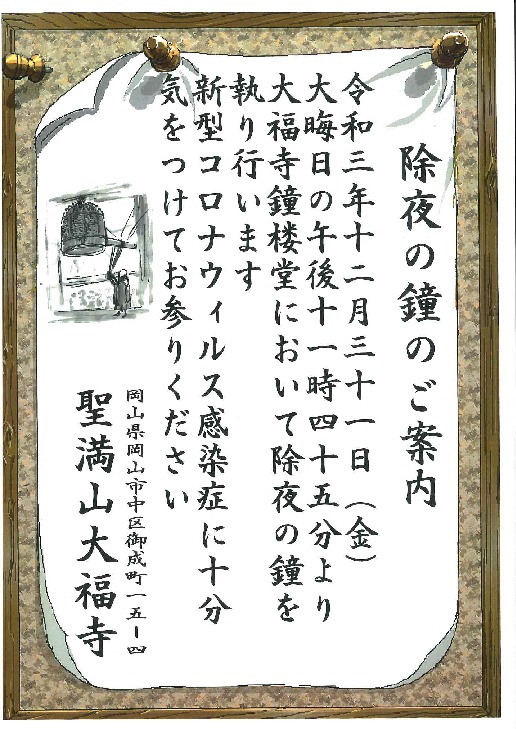 除夜の鐘のご案内
令和三年十二月三十一日（金）
大晦日の午後十一時四十五分より
大福寺鐘楼堂において除夜の鐘を
執り行います
新型コロナウィルス感染症に十分
気をつけてお参りください
岡山県岡山市中区御成町一五ー四
聖満山大福寺